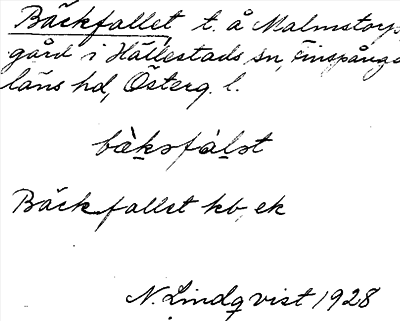 Bäckfallet t. å Malmstorps
gård i Hällestads sn, Finspånga
läns hd, Österg. l.
bèksfàlst
Bäckfallst kb, ek
N. Lindqvist 1928